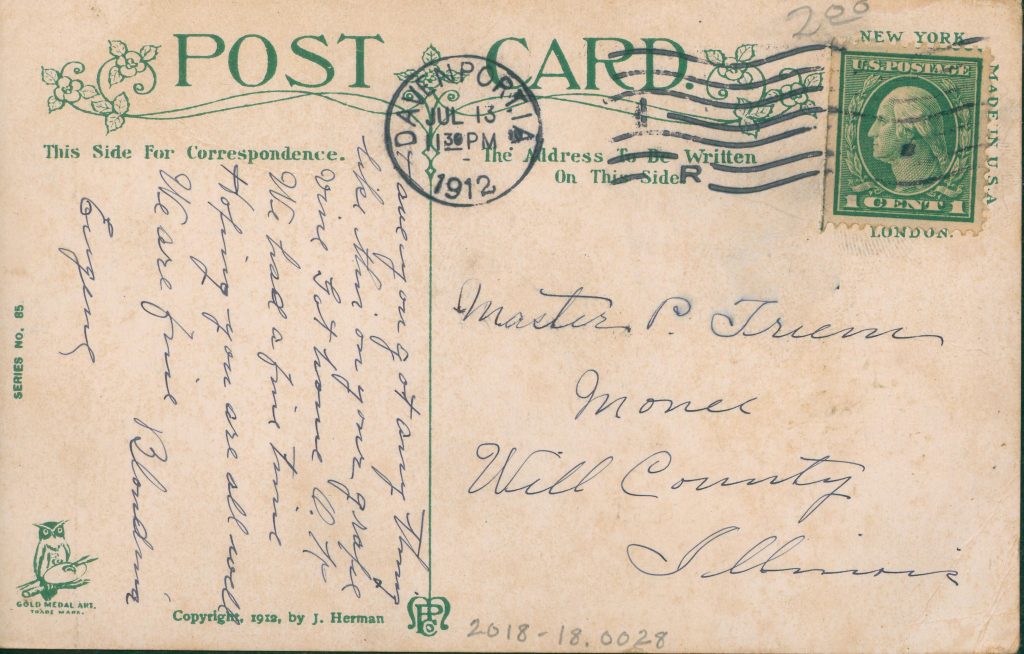 200
POST CARD.
NEW YORK
U.S. POSTAGE
1 CENT 1
LONDON.
MADE IN U.S.A
DAVENPORT, IA
JUL 13
1130 PM
1912
1
R
This Side For Correspondence.
The Address To Be Written
On This Side
Have you got any thing
like this on your grape
vine Got home O. K.
We had a fine time
Hoping you are all well
We are fine Blondina
Eugene
Master P. Triem
Monee
Will County
Illinois
SERIES NO. 85
GOLD MEDAL ART.
TRADE MARK.
Copyright, 1912, by J. Herman
2018-18.0028